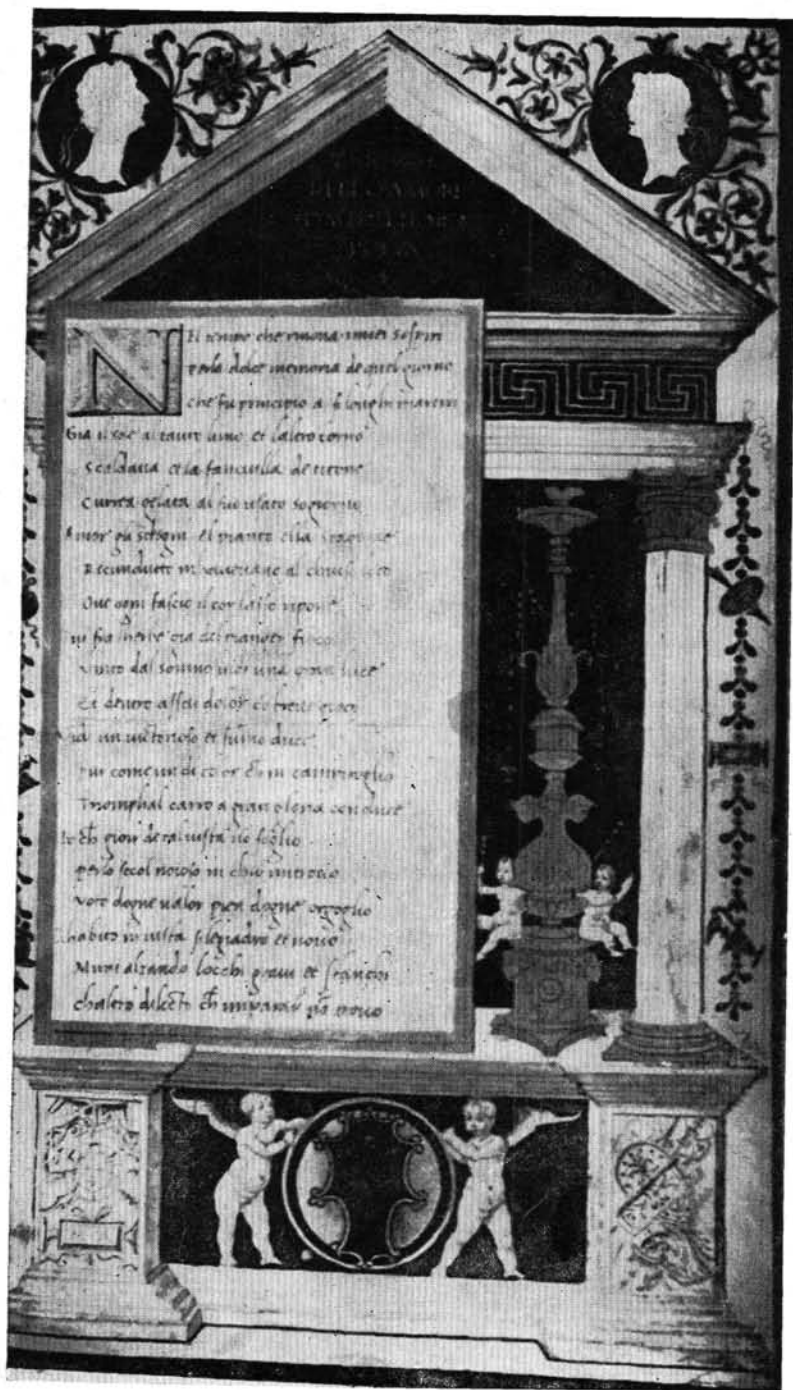 NEl tempo che rinova imiei sospiri
perla dolce memoria de quel giorno
che fu principio a si longhi martiri
Gia il sole al tauro luno et laltro corno
Scaldava et la fanciulla de titone
Currea gelata al suo usato sogiorno
Amor gli sdegni el pianto e la stagione
Recunducto al chiuso loco
Ove ogni fascio il cor lasso ripone
fra lherbe gia del pianger fioco
Vinto dal somno vidi una gran luce
Et dentro assai dolor cō breve gioco
un victorioso et summo duce
Pur come un di color ch̄ in campitoglio
Triomphal carro a gran gloria conduce
Io ch̄ gioir de tal vista nō soglio
perlo secol noioso in chio mi trovo
Voto dogne valor pien dogne orgoglio
habito in vista si legiadro et novo
Mirai alzando locchi gravi et stanchi
chaltro dilecto ch̄ imparar nō trovo